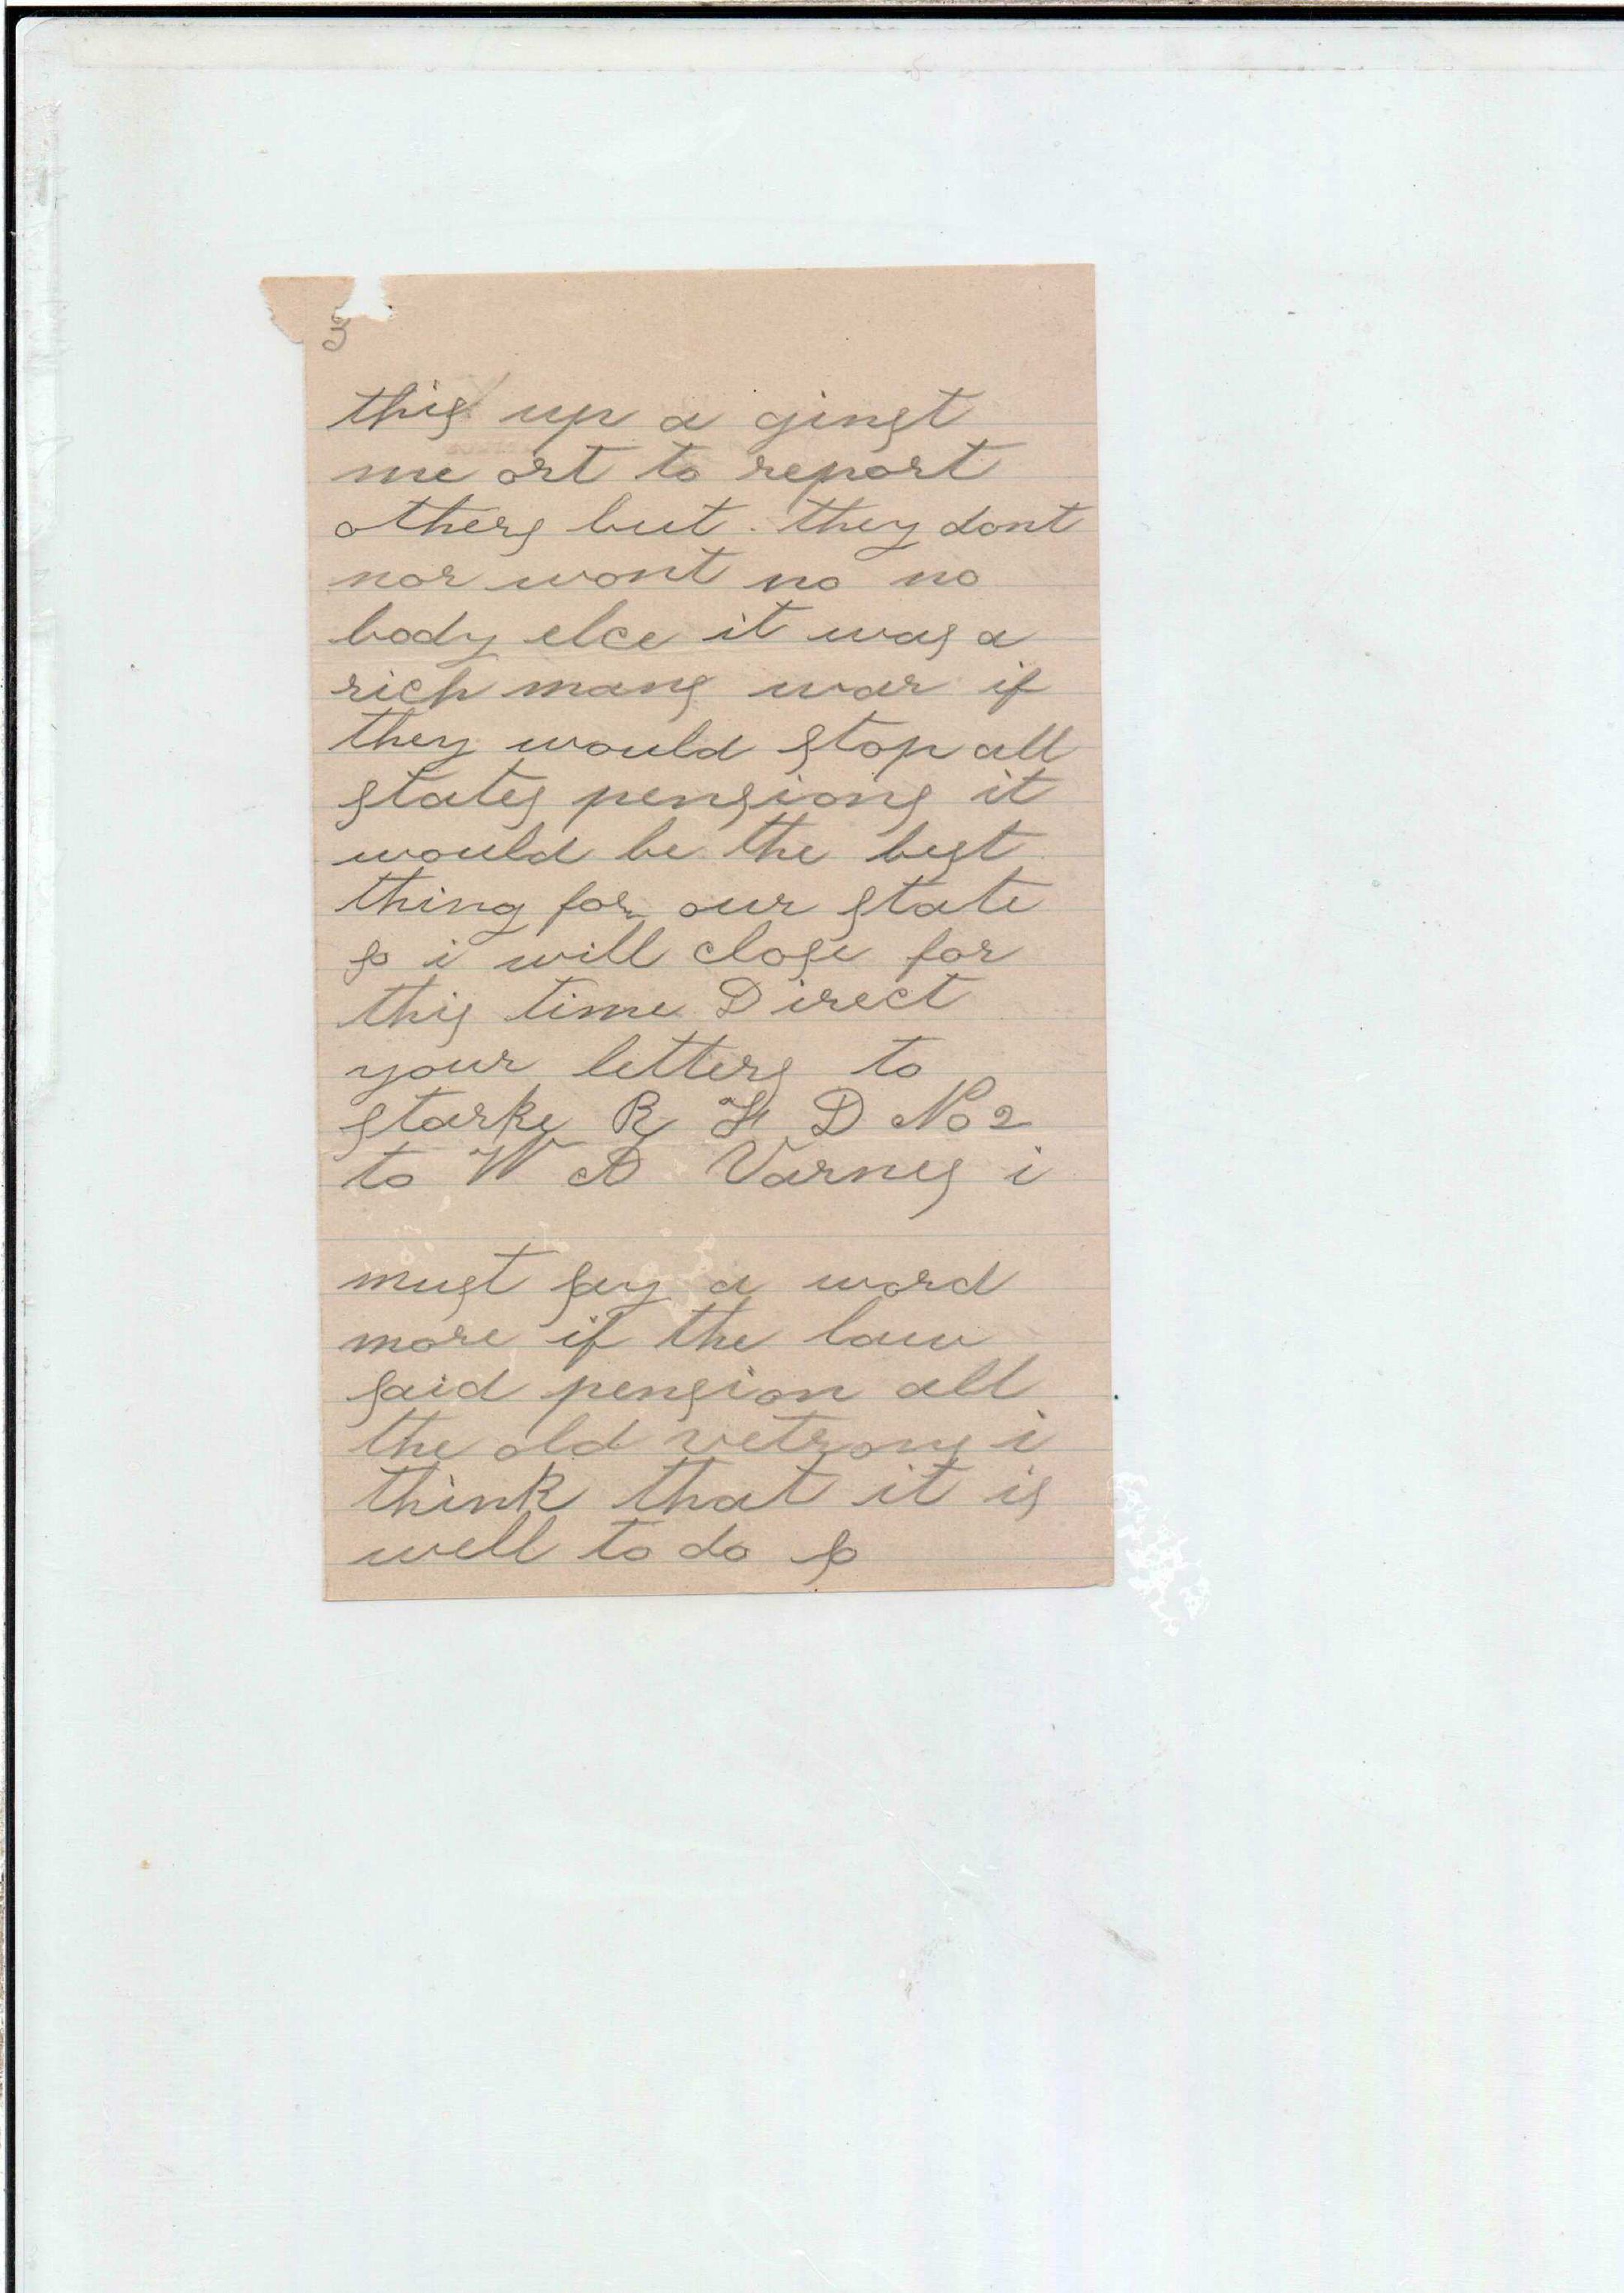 3
this up a ginst
me ort to report
others but they dont
nor wont no no
body elce it was a
rich mans war if
they would stop all
states pensions it
would be the best
thing for our state
so i will close for
this time Direct
your letters to
starke R F D No 2
to W D Varnes i
must say a word
more if the law
said pension all
the old vetrons i
think that it is
well to do so